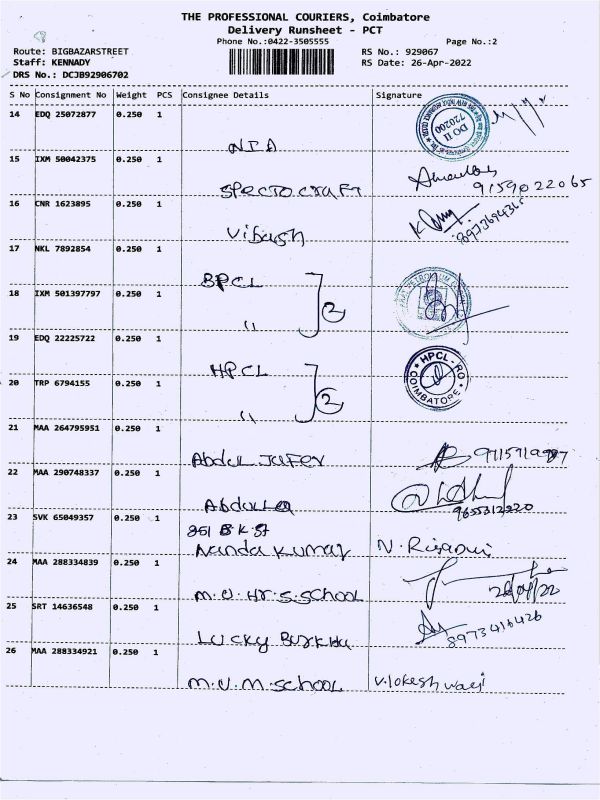 THE PROFESSIONAL COURIERS, Coimbatore
Delivery Runsheet - PCT
Phone No.:0422-3505555
Page No.:2
Route: BIGBAZARSTREET
RS No.: 929067
Staff: KENNADY
RS Date: 26-Apr-2022
DRS No.: DCJB92906702
S No Consignment No Weight PCS Consignee Details Signature
14 EDQ 25072877 0.250 1
NIA
DO II 720200
15 IXM 50042375 0.250 1
Spectocraft
9159022065
16 CNR 1623895 0.250 1
Vibash
17 NKL 7892854 0.250 1
BPCL
18 IXM 501397797 0.250 1
" 2
19 EDQ 22225722 0.250 1
HPCL
HPCL-RO COIMBATORE
20 TRP 6794155 0.250 1
" 2
21 MAA 264795951 0.250 1
Abdul Jafer
22 MAA 290748337 0.250 1
Abdulla
9655312220
23 SVK 65049357 0.250 1
251 B.K.St
Nanda Kumar
24 MAA 288334839 0.250 1
M.U.Hr.S.School
26/04/22
25 SRT 14636548 0.250 1
Lucky Burkha
8973416426
26 MAA 288334921 0.250 1
M.U.M.School V.lokeshwari